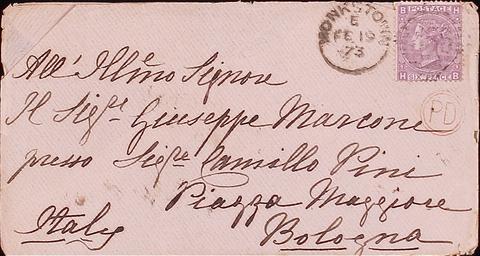 MONKSTOWN
E
FE 19
73
B POSTAGE H
H SIX PENCE B
PD
All' Illmo Signore
Il Sigre Giuseppe Marcone
presso Sigre Camillo Pini
Piazza Maggiore
Italy Bologna